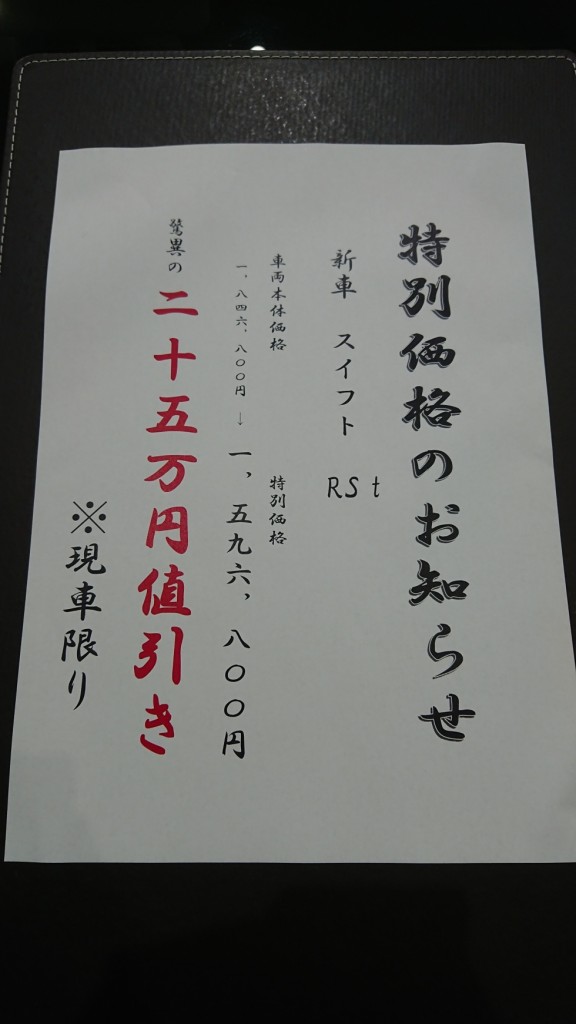 特別価格のお知らせ
新車 スイフト RSt
車両本体価格 特別価格
一,八四六,八〇〇円→一,五九六,八〇〇円
驚異の二十五万円値引き
※現車限り